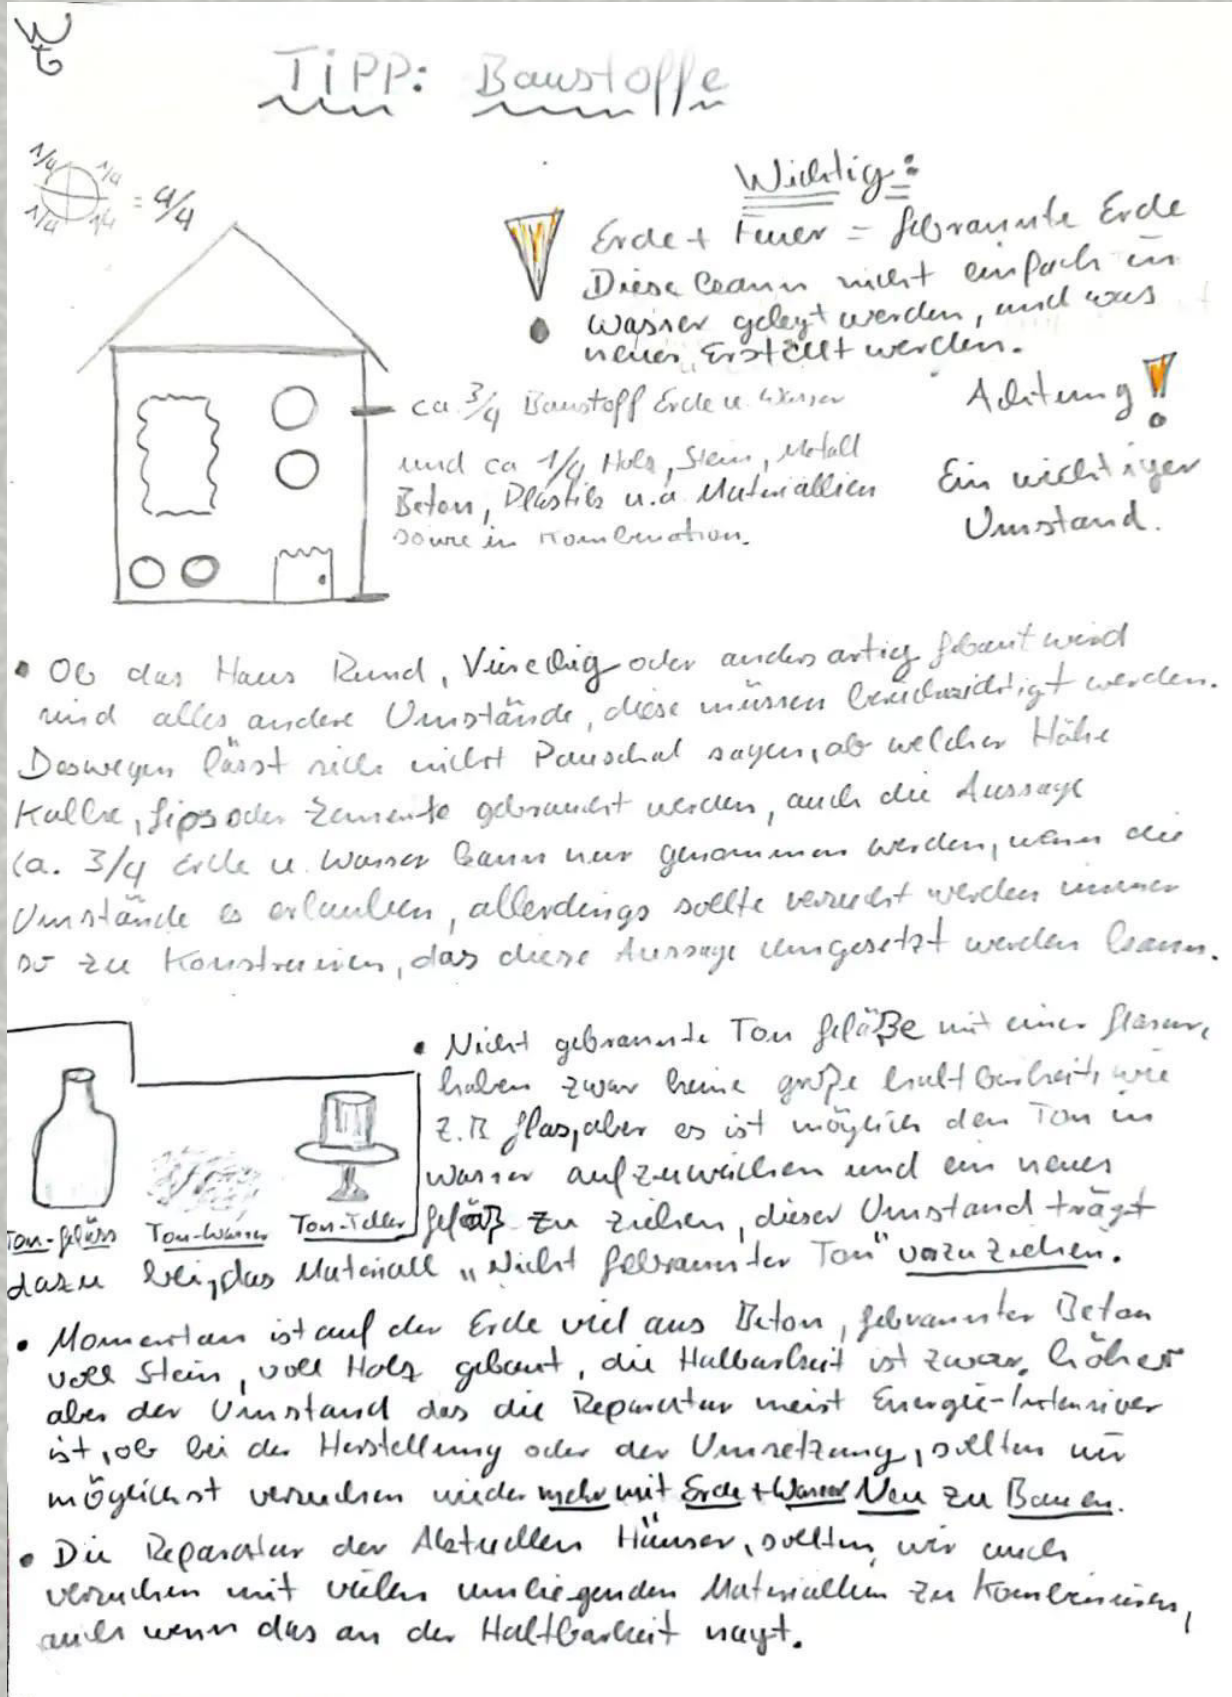 TiPP: Baustoffe
1/4 1/4
1/4 1/4 = 4/4
Wichtig:
Erde + Feuer = Gebrannte Erde
Diese kann nicht einfach in
Wasser gelegt werden, und was
neues Erstellt werden.
Achtung!
Ein wichtiger
Umstand.
ca. 3/4 Baustoff Erde u. Wasser
und ca 1/4 Holz, Stein, Metall
Beton, Plastik u.a Materiallien
sowie in Kombination.
• Ob das Haus Rund, Viereckig oder andersartig Gebaut wird
sind alles andere Umstände, diese müssen berücksichtigt werden.
Deswegen lässt sich nicht Pauschal sagen, ab welcher Höhe
Kalke, Gips oder Zemente gebraucht werden, auch die Aussage
Ca. 3/4 Erde u. Wasser kann nur genommen werden, wenn die
Umstände es erlauben, allerdings sollte versucht werden immer
so zu Konstruieren, das diese Aussage Umgesetzt werden kann.
• Nicht gebrannte Ton Gefäße mit einer Glasur,
haben zwar keine große haltbarkeit, wie
z.B Glas, aber es ist möglich den Ton in
Wasser aufzuweichen und ein neues
Gefäß zu ziehen, dieser Umstand trägt
dazu bei, das Materiall „Nicht Gebrannter Ton" vozuziehen.
Ton-Gefäss Ton-Wasser Ton-Teller
• Momentan ist auf der Erde viel aus Beton, Gebrannter Beton
voll Stein, voll Holz gebaut, die Haltbarkeit ist zwar höher
aber der Umstand das die Reparatur meist Energie-Intensiver
ist, ob bei der Herstellung oder der Umsetzung, sollten wir
möglichst versuchen wieder mehr mit Erde + Wasser Neu zu Bauen.
• Die Reparatur der Aktuellen Häuser, sollten wir auch
versuchen mit vielen umliegenden Materiallien zu Kombinieren,
auch wenn das an der Haltbarkeit nagt.